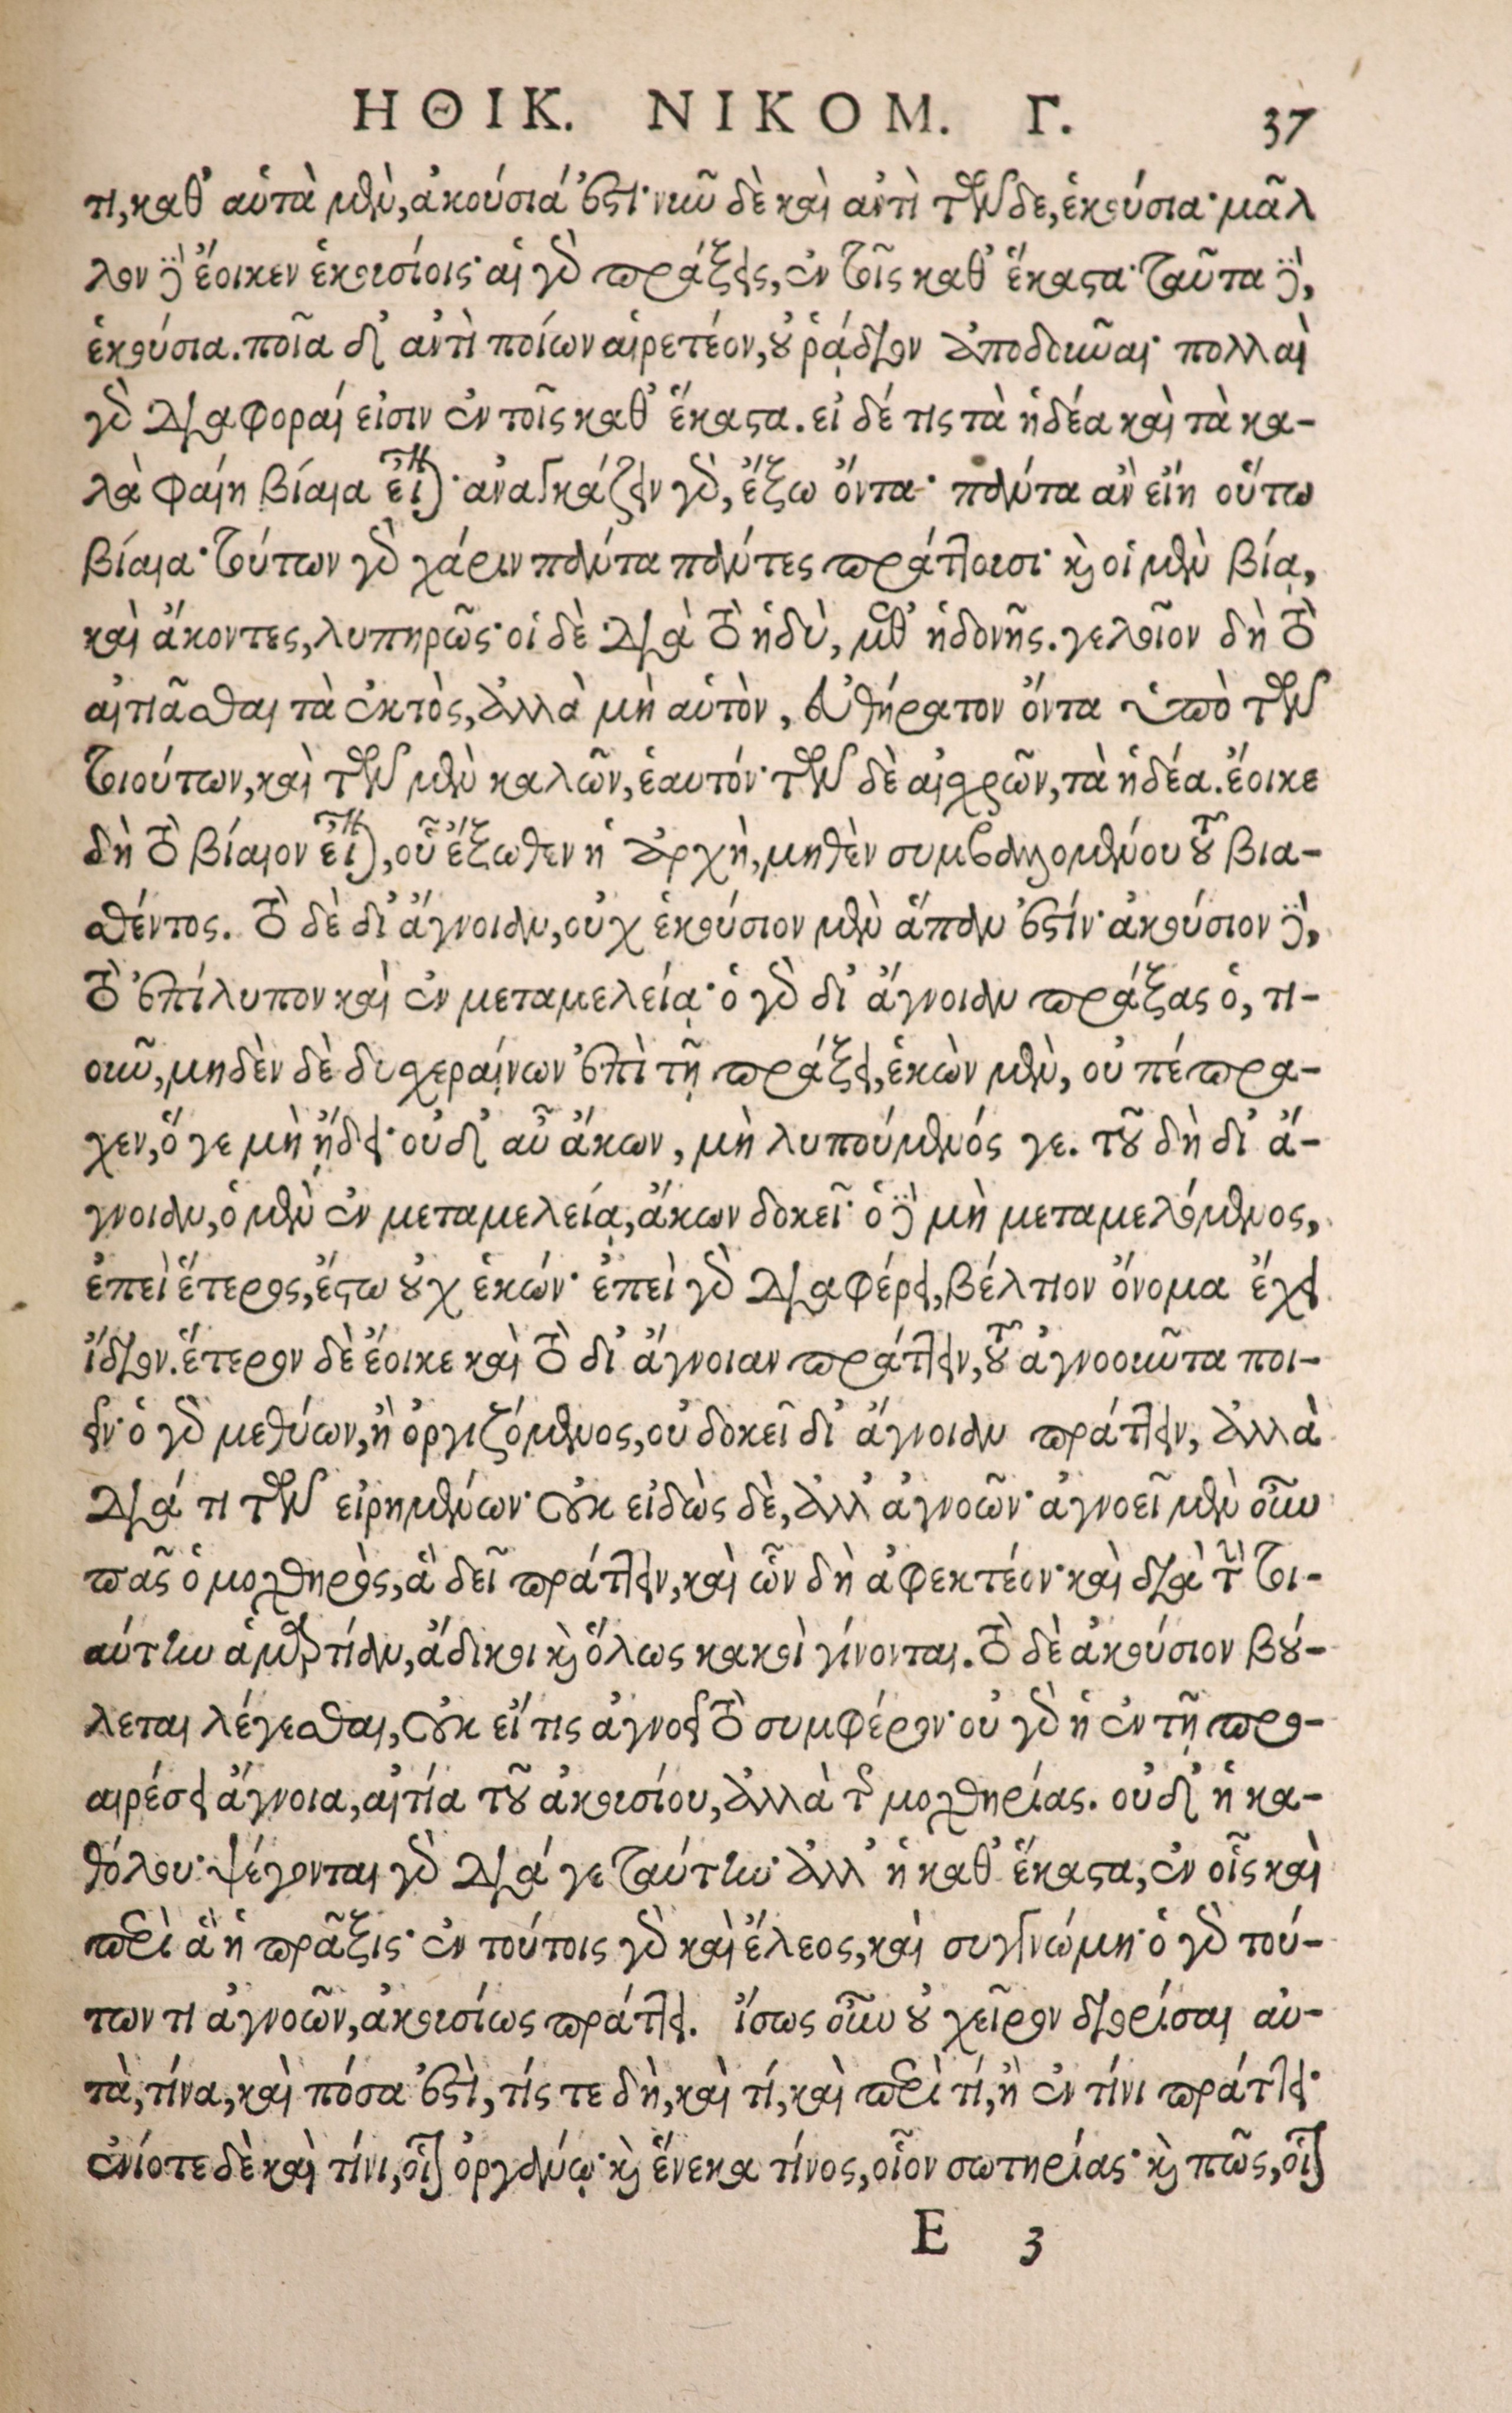 ΗΘΙΚ. ΝΙΚΟΜ. Γ. 37
τι, καθ' αὑτὰ μὲν, ἀκούσιά ἐστι· νῦν δὲ καὶ ἀντὶ τῶνδε, ἑκούσια· μᾶλ
λον δὲ ἔοικεν ἑκουσίοις· αἱ γὰρ πράξεις, ἐν τοῖς καθ' ἕκαστα· ταῦτα δὲ,
ἑκούσια. ποῖα δ' ἀντὶ ποίων αἱρετέον, οὐ ῥᾴδιον ἀποδοῦναι· πολλαὶ
γὰρ διαφοραί εἰσιν ἐν τοῖς καθ' ἕκαστα. εἰ δέ τις τὰ ἡδέα καὶ τὰ κα-
λὰ φαίη βίαια εἶναι· ἀναγκάζειν γὰρ, ἔξω ὄντα· πάντα ἂν εἴη οὕτω
βίαια· τούτων γὰρ χάριν πάντα πάντες πράττουσι· καὶ οἱ μὲν βίᾳ,
καὶ ἄκοντες, λυπηρῶς· οἱ δὲ διὰ τὸ ἡδὺ, μεθ' ἡδονῆς. γελοῖον δὴ τὸ
αἰτιᾶσθαι τὰ ἐκτὸς, ἀλλὰ μὴ αὑτὸν, εὐθήρατον ὄντα ὑπὸ τῶν
τοιούτων, καὶ τῶν μὲν καλῶν, ἑαυτόν· τῶν δὲ αἰσχρῶν, τὰ ἡδέα. ἔοικε
δὴ τὸ βίαιον εἶναι, οὗ ἔξωθεν ἡ ἀρχὴ, μηθὲν συμβαλλομένου τοῦ βια-
σθέντος. τὸ δὲ δι' ἄγνοιαν, οὐχ ἑκούσιον μὲν ἅπαν ἐστίν· ἀκούσιον δὲ,
τὸ ἐπίλυπον καὶ ἐν μεταμελείᾳ· ὁ γὰρ δι' ἄγνοιαν πράξας ὁ, τι-
οῦν, μηδὲν δὲ δυσχεραίνων ἐπὶ τῇ πράξει, ἑκὼν μὲν, οὐ πέπρα-
χεν, ὅ γε μὴ ᾔδει· οὐδ' αὖ ἄκων, μὴ λυπούμενός γε. τοῦ δὴ δι' ἄ-
γνοιαν, ὁ μὲν ἐν μεταμελείᾳ, ἄκων δοκεῖ· ὁ δὲ μὴ μεταμελόμενος,
ἐπεὶ ἕτερος, ἔστω οὐχ ἑκών· ἐπεὶ γὰρ διαφέρει, βέλτιον ὄνομα ἔχειν
ἴδιον. ἕτερον δὲ ἔοικε καὶ τὸ δι' ἄγνοιαν πράττειν, τοῦ ἀγνοοῦντα ποι-
εῖν· ὁ γὰρ μεθύων, ἢ ὀργιζόμενος, οὐ δοκεῖ δι' ἄγνοιαν πράττειν, ἀλλὰ
διά τι τῶν εἰρημένων· οὐκ εἰδὼς δὲ, ἀλλ' ἀγνοῶν· ἀγνοεῖ μὲν οὖν
πᾶς ὁ μοχθηρὸς, ἃ δεῖ πράττειν, καὶ ὧν δὴ ἀφεκτέον· καὶ διὰ τὴν τοι-
αύτην ἁμαρτίαν, ἄδικοι καὶ ὅλως κακοὶ γίνονται. τὸ δὲ ἀκούσιον βού-
λεται λέγεσθαι, οὐκ εἴ τις ἀγνοεῖ τὸ συμφέρον· οὐ γὰρ ἡ ἐν τῇ προ-
αιρέσει ἄγνοια, αἰτία τοῦ ἀκουσίου, ἀλλὰ τῆς μοχθηρίας. οὐδ' ἡ κα-
θόλου· ψέγονται γὰρ διά γε ταύτην· ἀλλ' ἡ καθ' ἕκαστα, ἐν οἷς καὶ
περὶ ἃ ἡ πρᾶξις· ἐν τούτοις γὰρ καὶ ἔλεος, καὶ συγγνώμη· ὁ γὰρ τού-
των τι ἀγνοῶν, ἀκουσίως πράττει. ἴσως οὖν οὐ χεῖρον διορίσαι αὐ-
τὰ, τίνα, καὶ πόσα ἐστὶ, τίς τε δὴ, καὶ τί, καὶ περὶ τί, ἢ ἐν τίνι πράττει·
ἐνίοτε δὲ καὶ τίνι, οἷον ὀργάνῳ· καὶ ἕνεκα τίνος, οἷον σωτηρίας· καὶ πῶς, οἷον
E 3